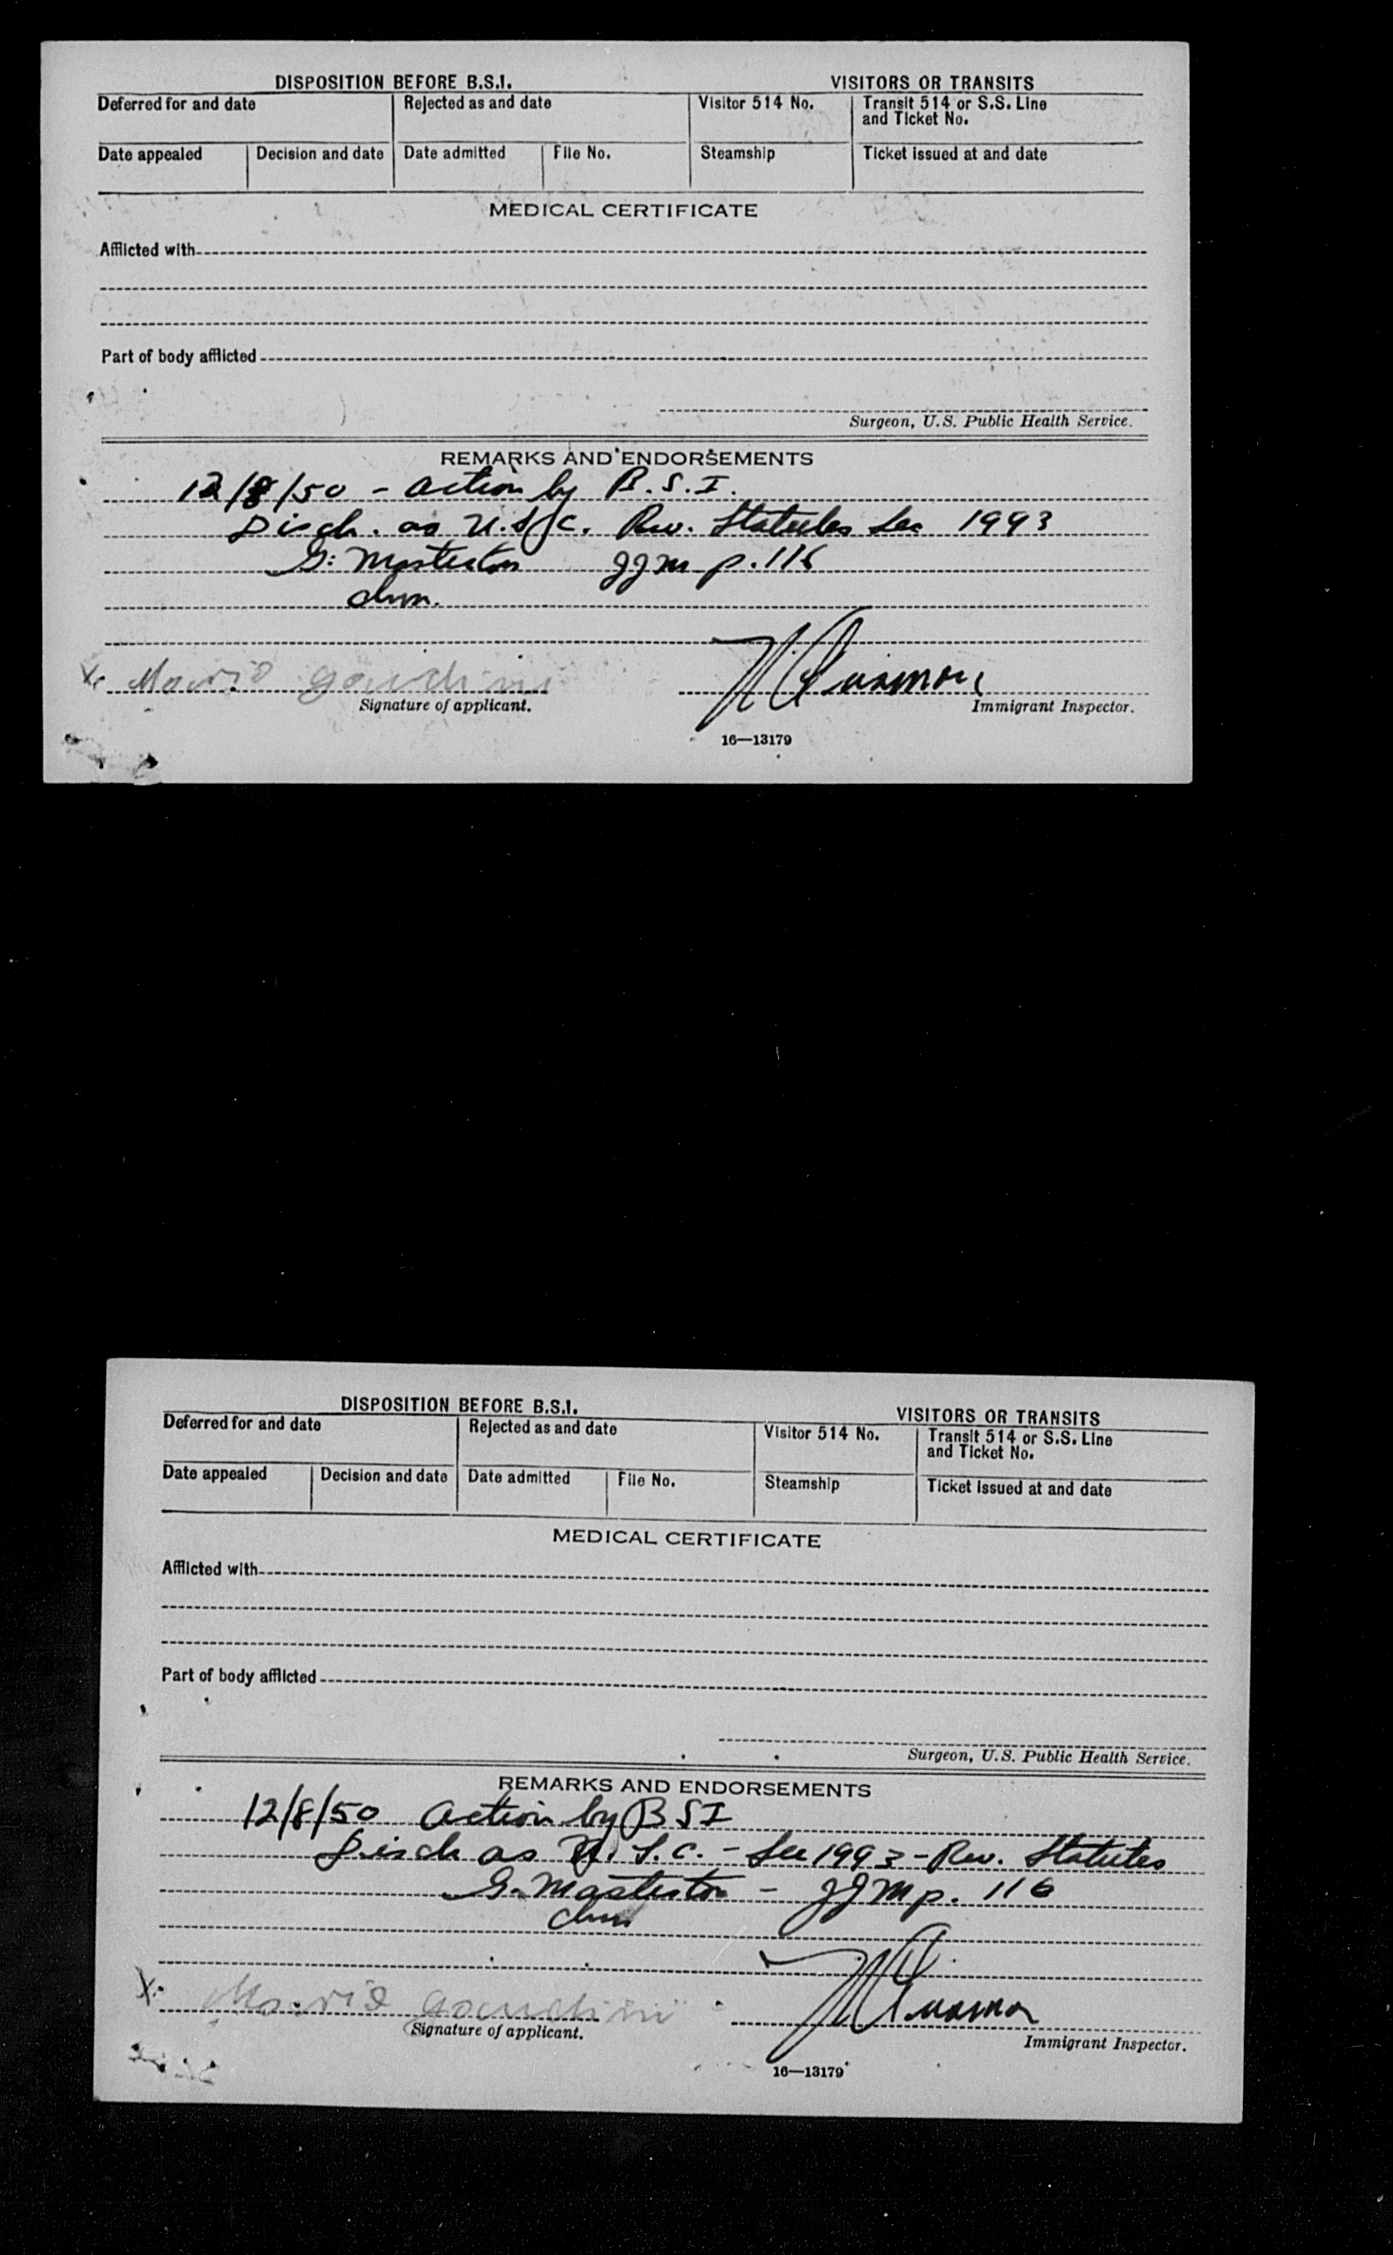 DISPOSITION BEFORE B.S.I.
VISITORS OR TRANSITS
Deferred for and date
Rejected as and date
Visitor 514 No.
Transit 514 or S.S. Line
and Ticket No.
Date appealed
Decision and date
Date admitted
File No.
Steamship
Ticket issued at and date
MEDICAL CERTIFICATE
Afflicted with
Part of body afflicted
Surgeon, U.S. Public Health Service.
REMARKS AND ENDORSEMENTS
12/8/50 - action by B.S.I.
Disch. as U.S.C. Rev. Statutes Sec 1993
G. Masterton JJM p. 116
chm.
X. Mario Gaudini
Signature of applicant.
Immigrant Inspector.
16—13179
DISPOSITION BEFORE B.S.I.
VISITORS OR TRANSITS
Deferred for and date
Rejected as and date
Visitor 514 No.
Transit 514 or S.S. Line
and Ticket No.
Date appealed
Decision and date
Date admitted
File No.
Steamship
Ticket issued at and date
MEDICAL CERTIFICATE
Afflicted with
Part of body afflicted
Surgeon, U.S. Public Health Service.
REMARKS AND ENDORSEMENTS
12/8/50 action by BSI
Disch as U.S.C. - Sec 1993 - Rev. Statutes
G. Masterton - JJM p. 116
chm
X. Mario Gaudini
Signature of applicant.
Immigrant Inspector.
16—13179